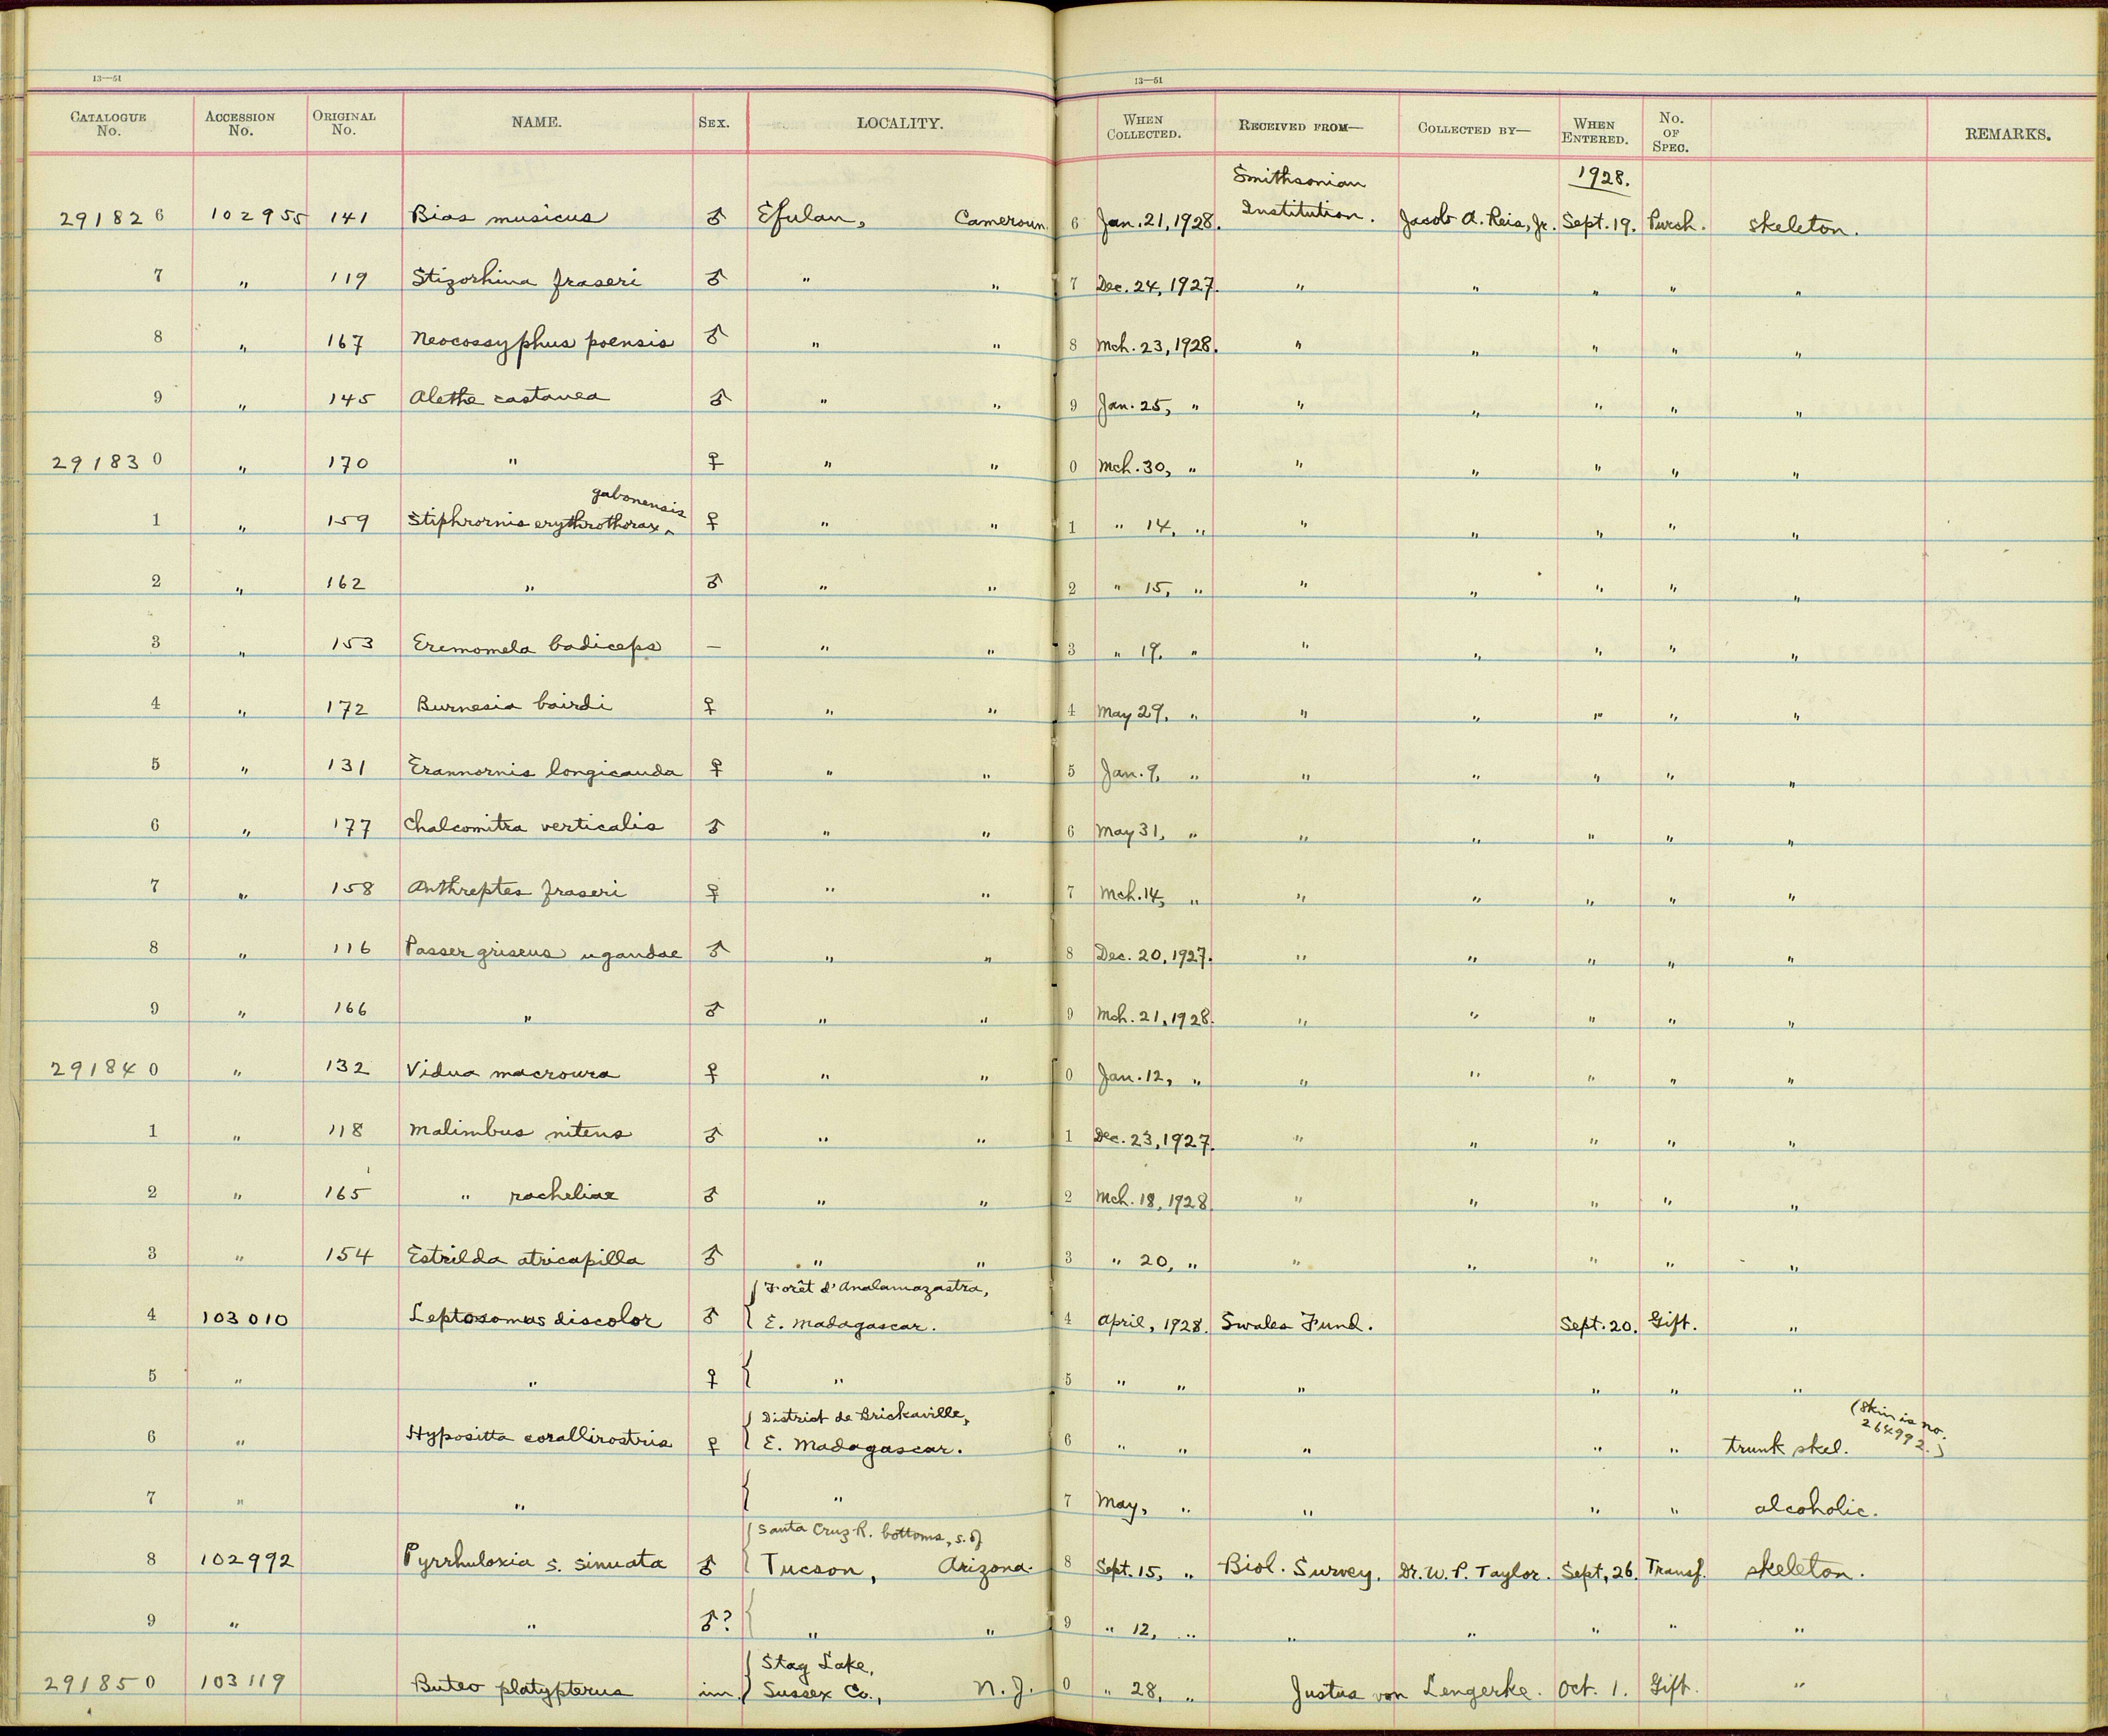 13—51
13—51
CATALOGUE No. ACCESSION No. ORIGINAL No. NAME. SEX. LOCALITY. WHEN COLLECTED. RECEIVED FROM— COLLECTED BY— WHEN ENTERED. No. OF SPEC. REMARKS.
291826 102955 141 Bias musicus ♂ Efulan, Cameroun. 6 Jan. 21, 1928. Smithsonian Institution. Jacob A. Reis, Jr. 1928. Sept. 19. Purch. skeleton.
7 " 119 Stizorhina fraseri ♂ " " 7 Dec. 24, 1927. " " " " "
8 " 167 Neocossyphus poensis ♂ " " 8 Mch. 23, 1928. " " " " "
9 " 145 Alethe castanea ♂ " " 9 Jan. 25, " " " " " "
291830 " 170 " ♀ " " 0 Mch. 30, " " " " " "
1 " 159 Stiphrornis erythrothorax ^ gabonensis ♀ " " 1 " 14, " " " " " "
2 " 162 " ♂ " " 2 " 15, " " " " " "
3 " 153 Eremomela badiceps — " " 3 " 19, " " " " " "
4 " 172 Burnesia bairdi ♀ " " 4 May 29, " " " " " "
5 " 131 Erannornis longicauda ♀ " " 5 Jan. 9, " " " " " "
6 " 177 Chalcomitra verticalis ♂ " " 6 May 31, " " " " " "
7 " 158 Anthreptes fraseri ♀ " " 7 Mch. 14, " " " " " "
8 " 116 Passer griseus ugandae ♂ " " 8 Dec. 20, 1927. " " " " "
9 " 166 " ♂ " " 9 Mch. 21, 1928. " " " " "
291840 " 132 Vidua macroura ♀ " " 0 Jan. 12, " " " " " "
1 " 118 Malimbus nitens ♂ " " 1 Dec. 23, 1927. " " " " "
2 " 165 " racheliae ♂ " " 2 Mch. 18, 1928. " " " " "
3 " 154 Estrilda atricapilla ♂ " " 3 " 20, " " " " " "
4 103010 Leptosomus discolor ♂ { Forêt d'Analamazastra, E. Madagascar. 4 April, 1928. Swales Fund. Sept. 20. Gift. "
5 " " ♀ { " 5 " " " " " "
6 " Hypositta corallirostris ♀ { District de Brickaville, E. Madagascar. 6 " " " " " trunk skel. (Skin is no. 264992.)
7 " " { " 7 May, " " " " alcoholic.
8 102992 Pyrrhuloxia s. sinuata ♂ { Santa Cruz R. bottoms, s. of Tucson, Arizona. 8 Sept. 15, " Biol. Survey. Dr. W. P. Taylor. Sept. 26. Transf. skeleton.
9 " " ♂? { " " 9 " 12, " " " " " "
291850 103119 Buteo platypterus im. { Stag Lake, Sussex Co., N. J. 0 " 28, " Justus von Lengerke. Oct. 1. Gift. "